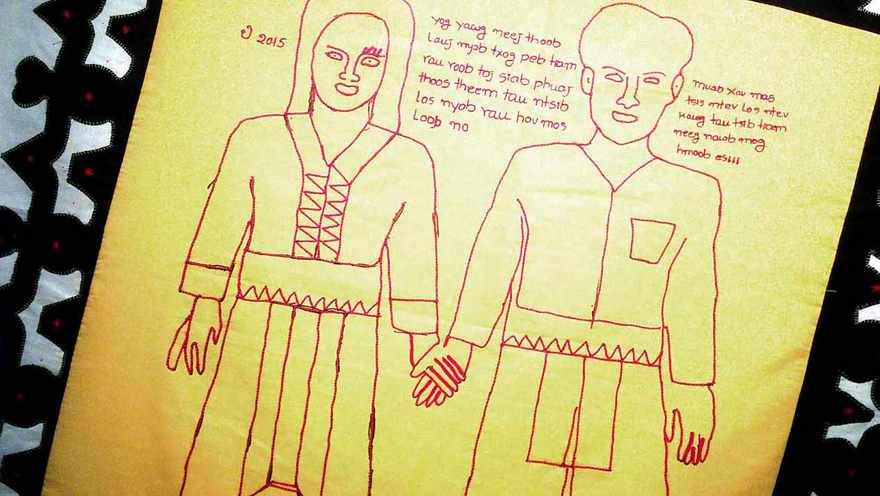 ປີ 2015
yog yawg meej thoob
Lauj nyob txog peb tiam
rau roob toj siab phuaj
thoos theem tau ntsib
los nyob rau hov mos
Loob no
muab xav mas
tsis ntev los ntev
kawg tau tsib tiam
neeg nawb mog
hmoob esııı